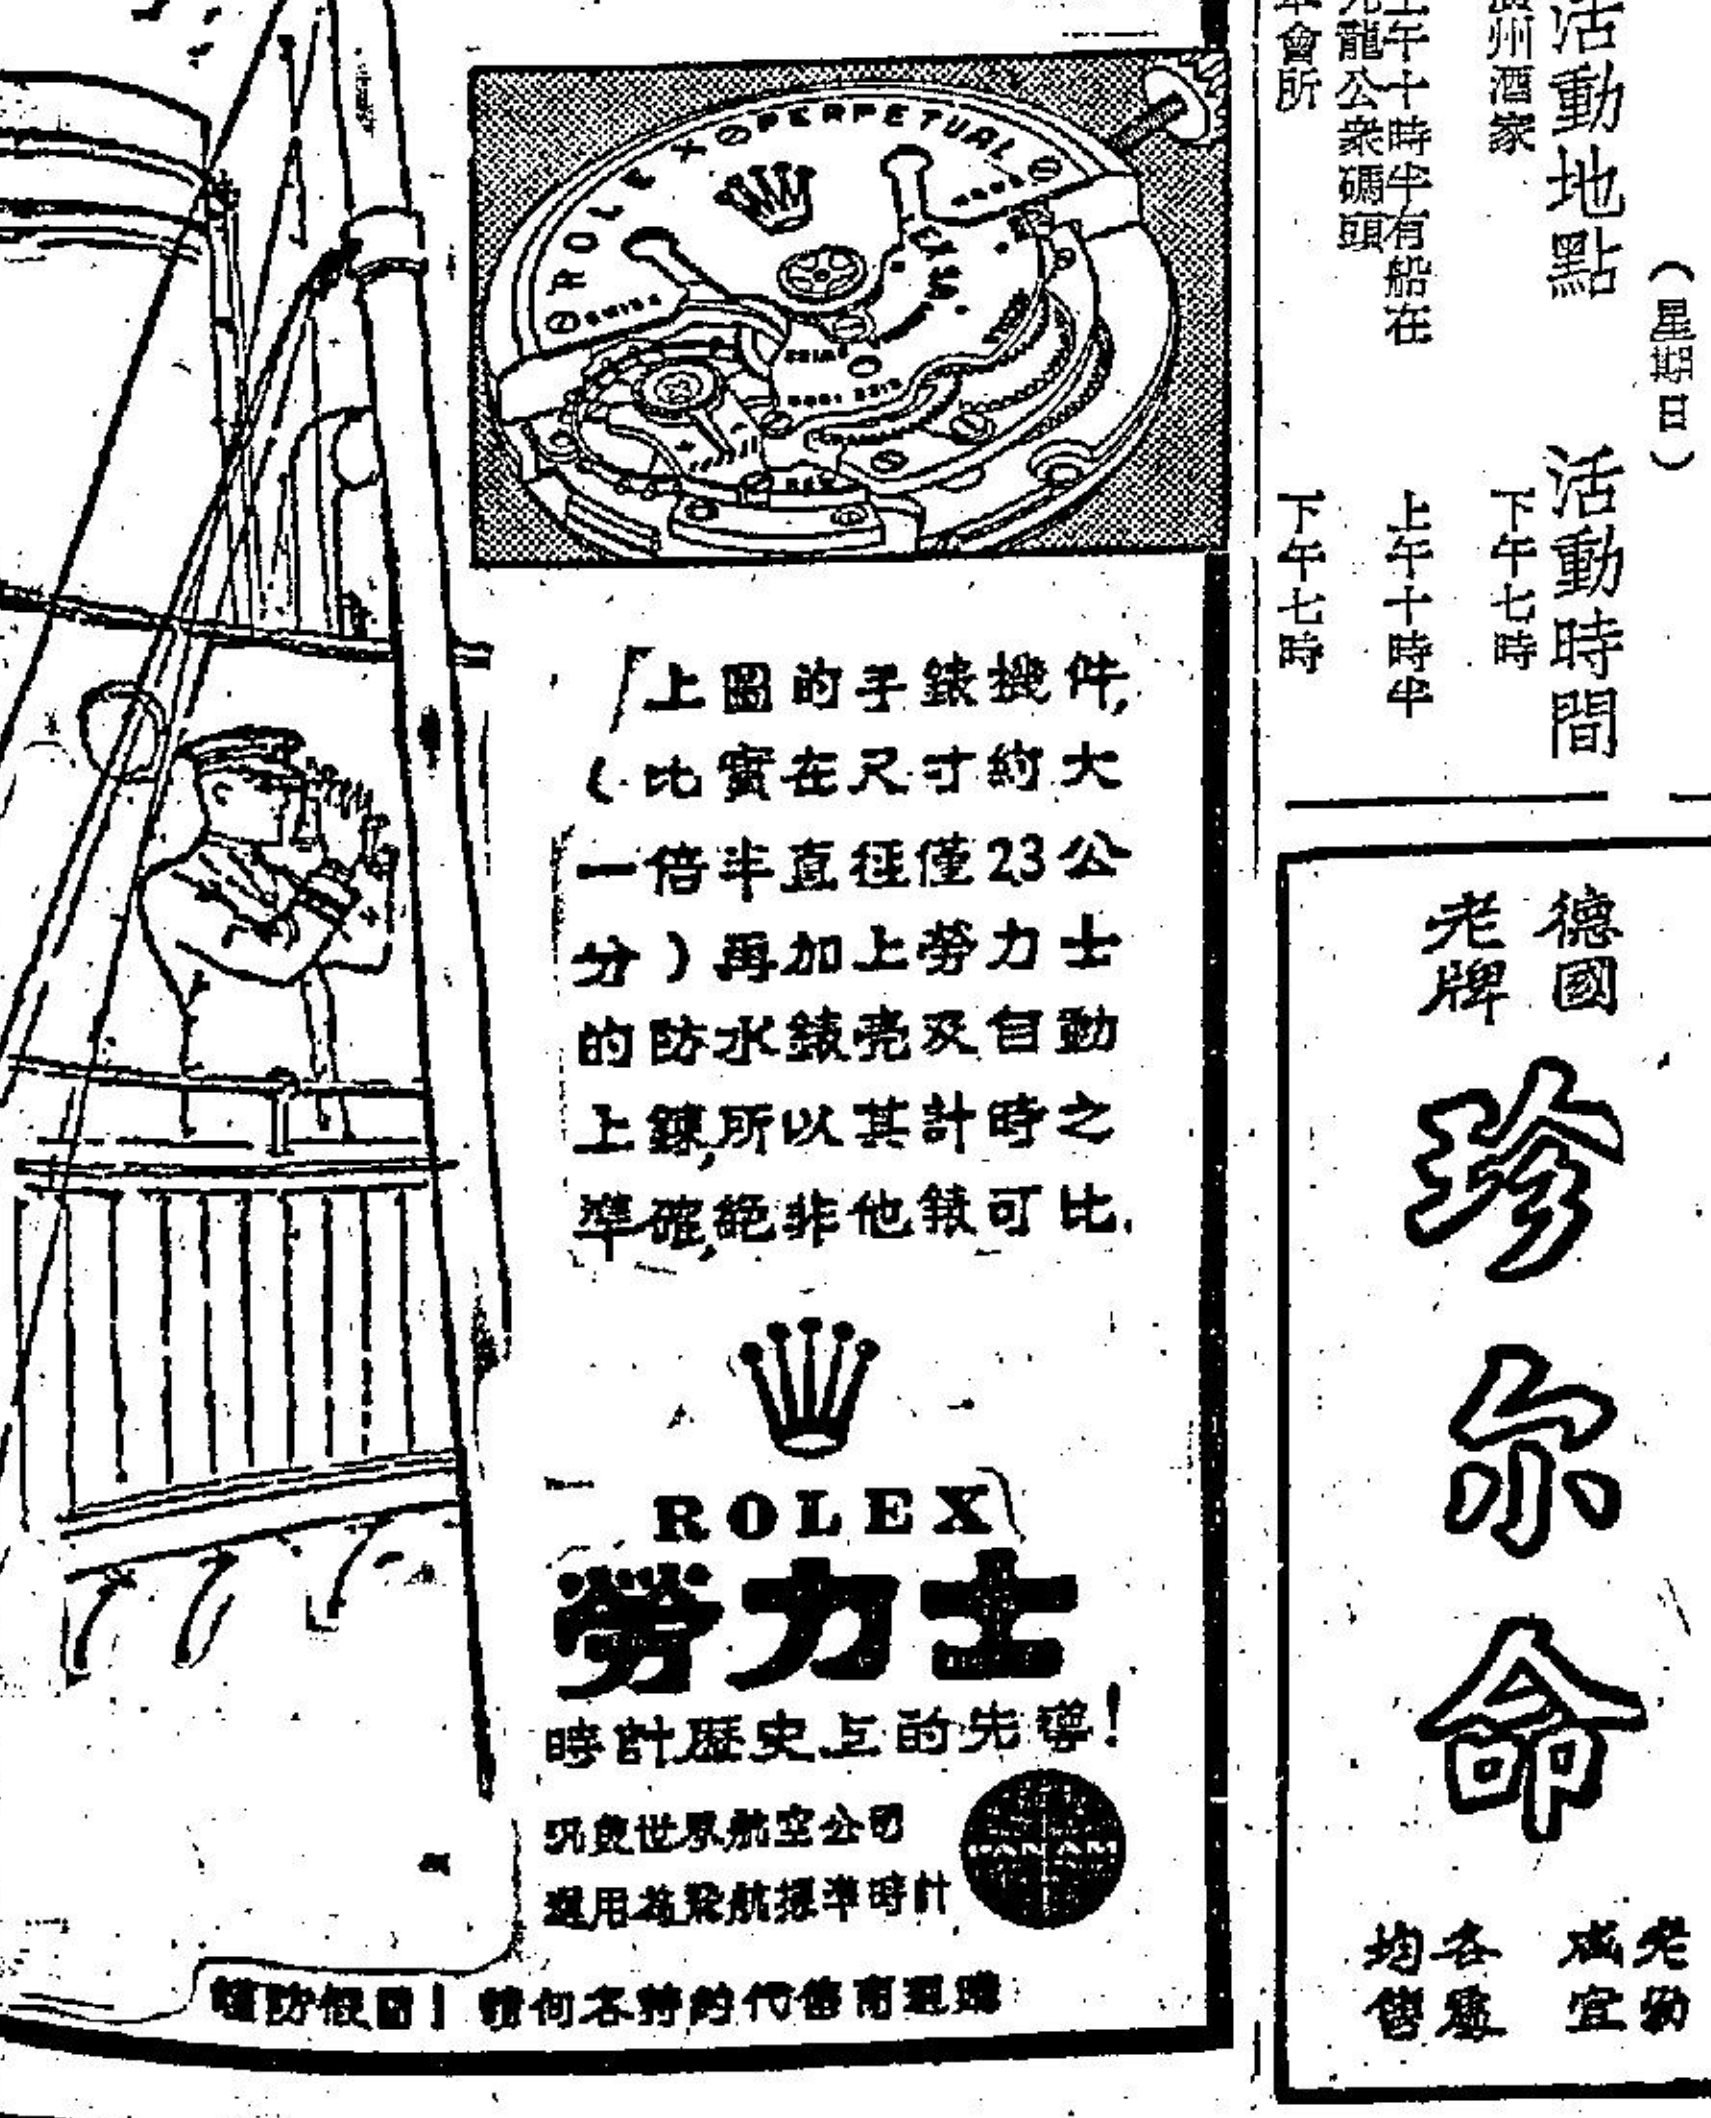 ROLEX PERPETUAL
上圖的手錶機件,
(比實在尺寸約大
一倍半直徑僅23公
分)再加上勞力士
的防水錶壳及自動
上鍊,所以其計時之
準確,絕非他錶可比.
ROLEX
勞力士
時計歷史上的先導!
汎美世界航空公司
選用為飛航標準時計
謹防假冒!請向各特約代售商選購
(星期日)
活動地點 活動時間
州酒家 下午七時
上午十時半有船在 上午十時半
九龍公眾碼頭
會所 下午七時
德國
老牌
珍尔命
老幼
咸宜
各處
均售